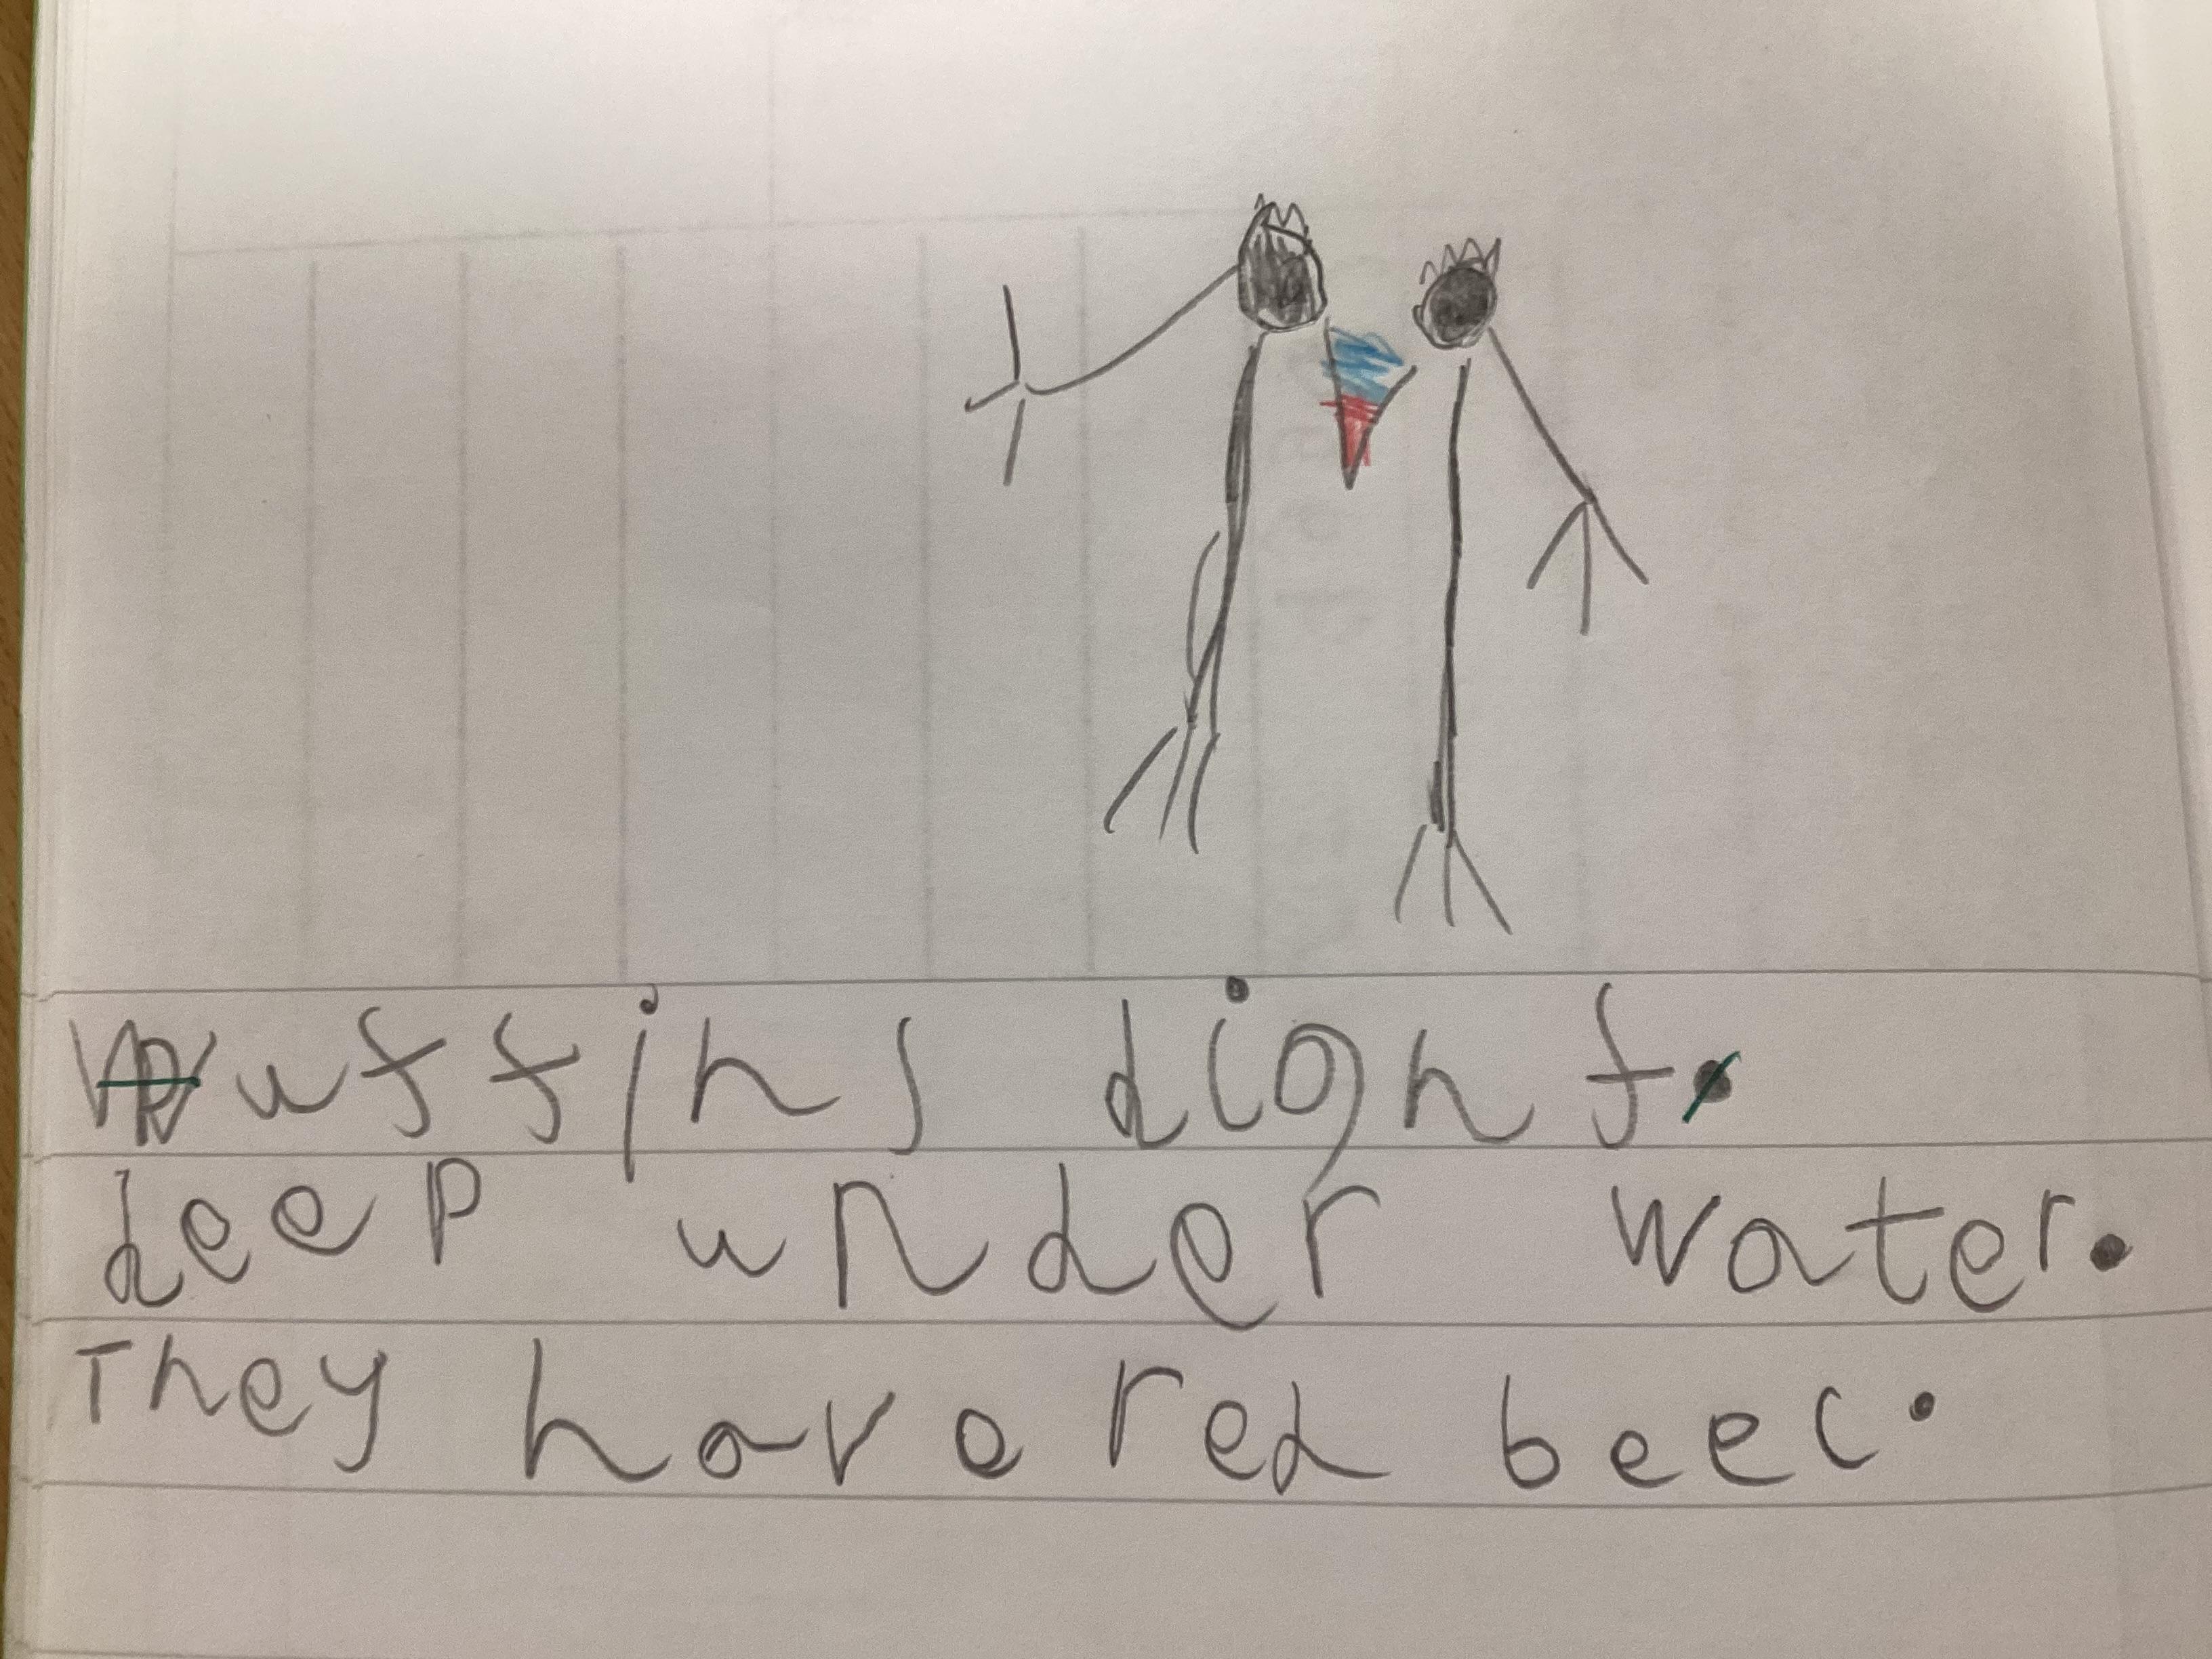 Puffins dignt.
deep under water.
They hav a red beec.